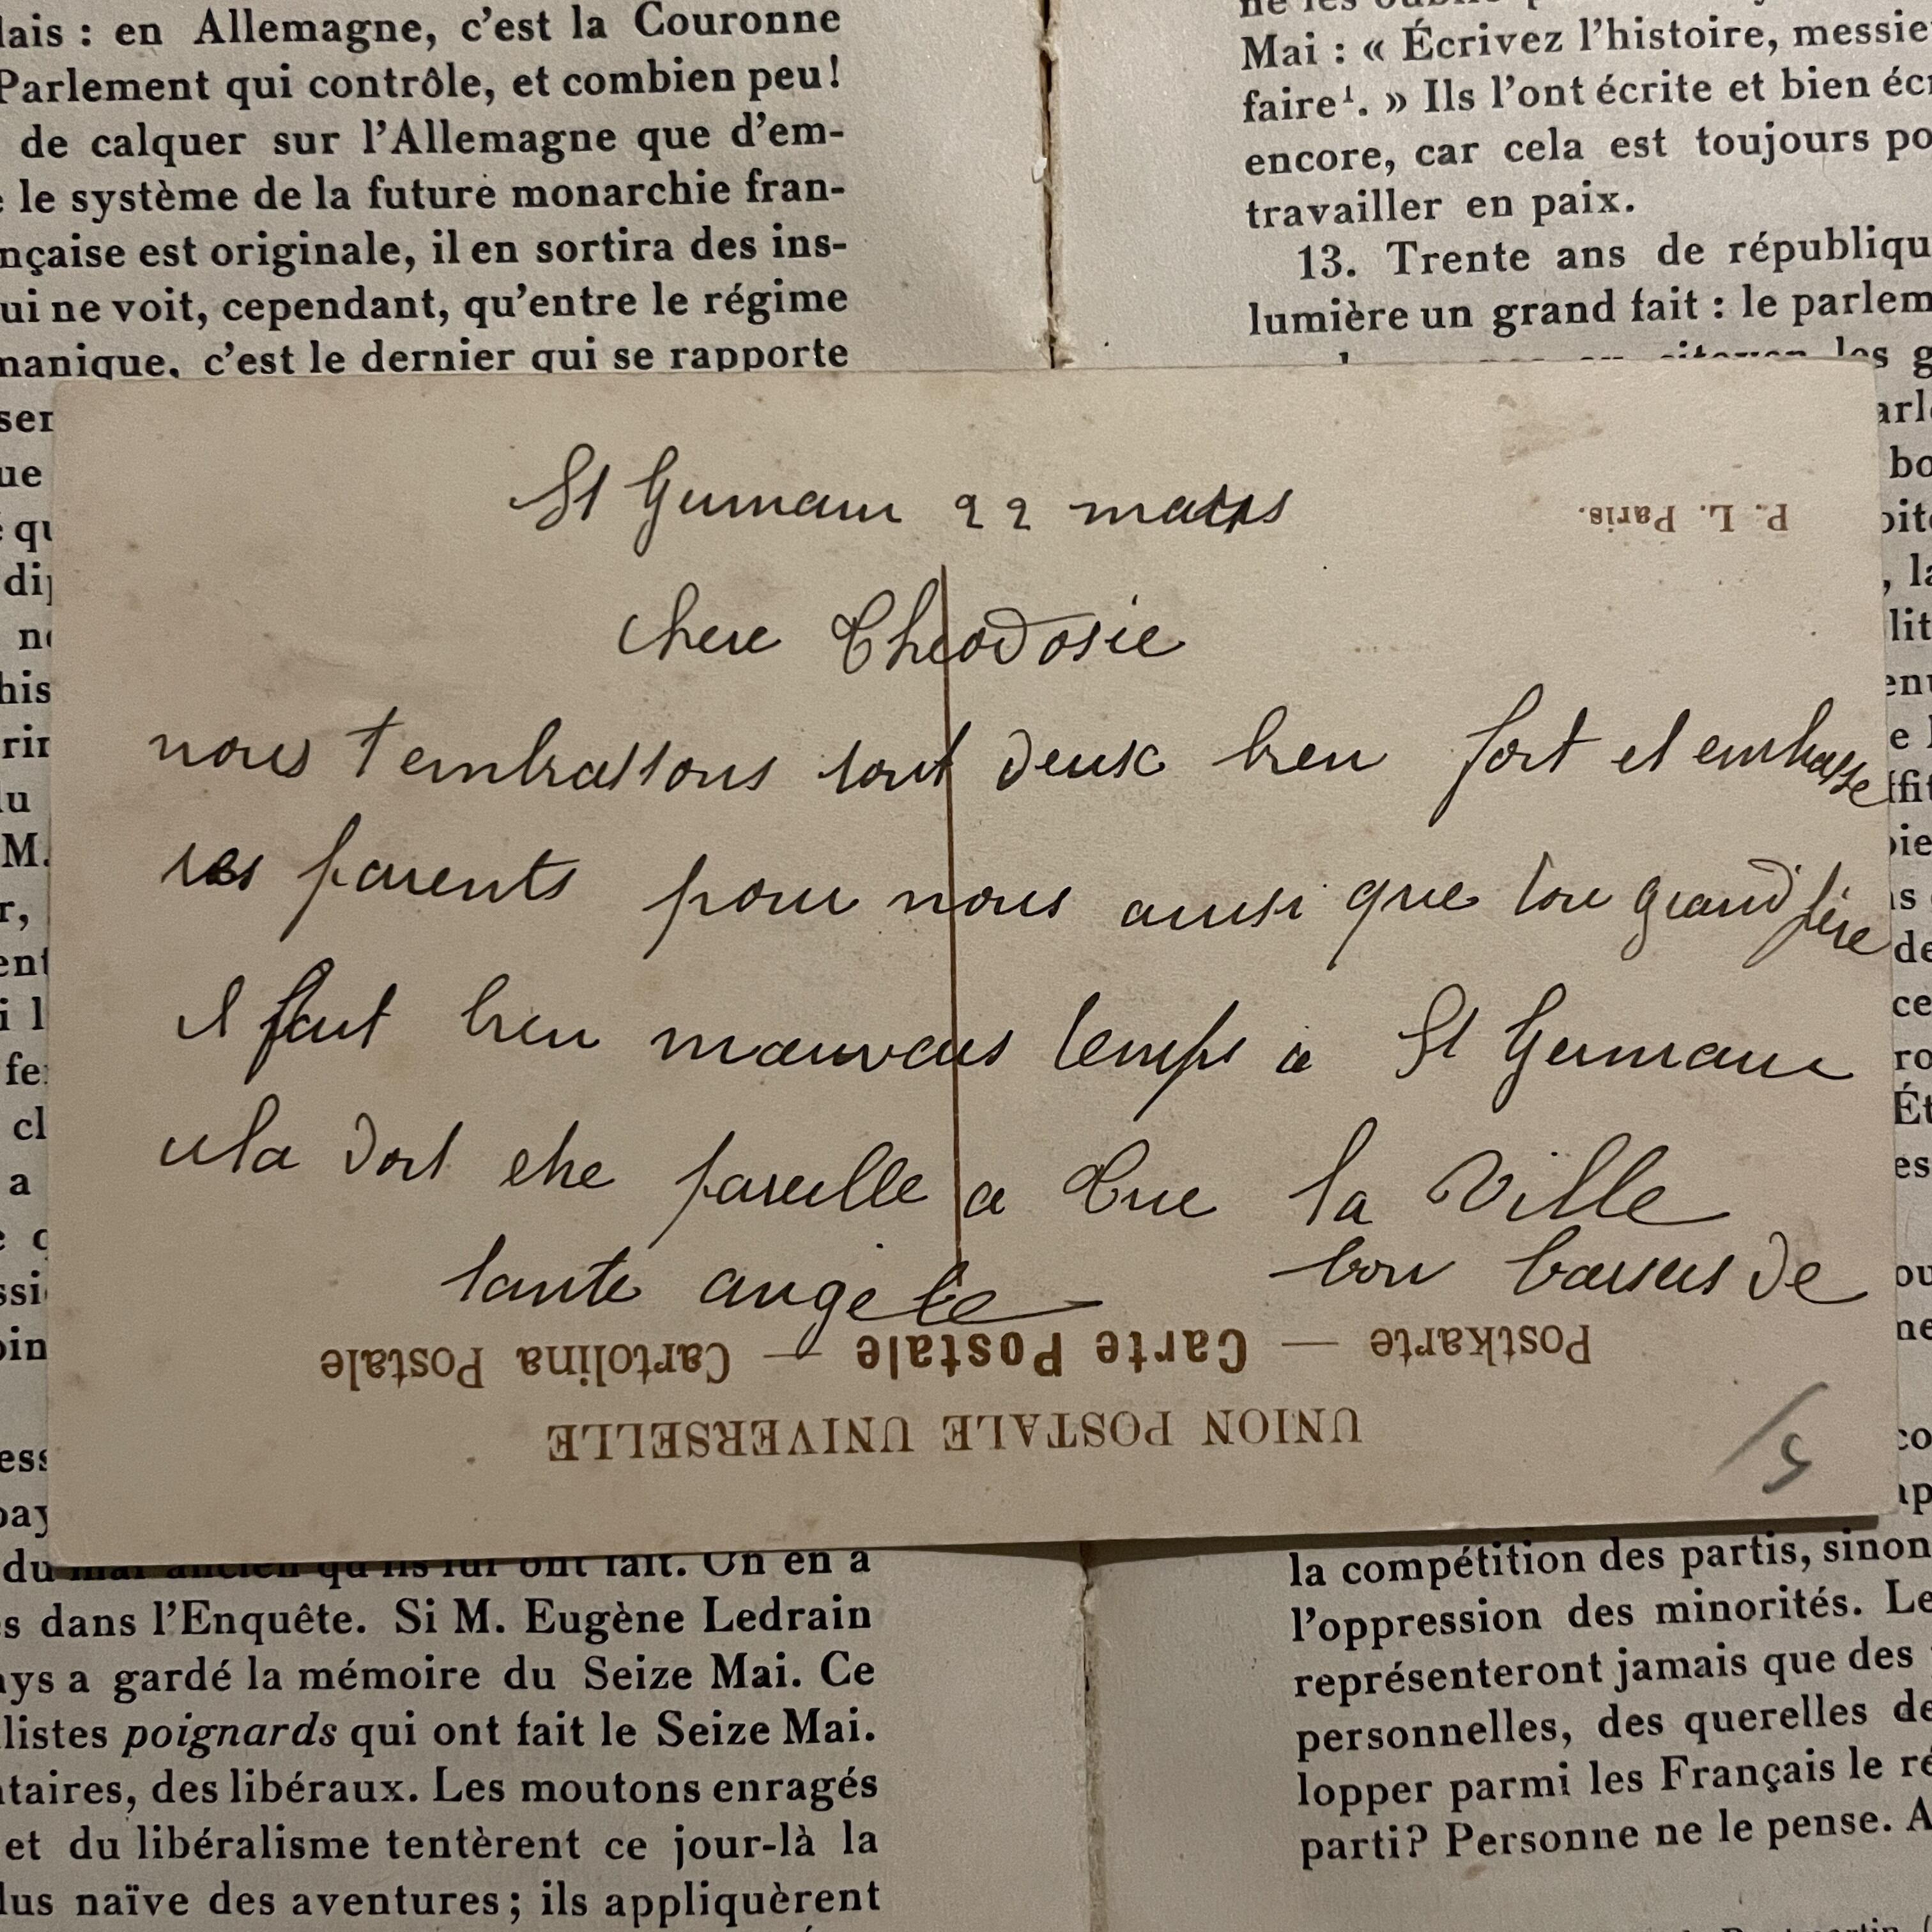 lais : en Allemagne, c'est la Couronne
Parlement qui contrôle, et combien peu!
de calquer sur l'Allemagne que d'em-
e le système de la future monarchie fran-
nçaise est originale, il en sortira des ins-
ui ne voit, cependant, qu'entre le régime
manique, c'est le dernier qui se rapporte
Mai : « Écrivez l'histoire, messie
faire¹. » Ils l'ont écrite et bien écr
encore, car cela est toujours po
travailler en paix.
13. Trente ans de républiqu
lumière un grand fait : le parlem
P. L. Paris.
St Germain 22 mars
chere Theodosie
nous t embrassons tout deux bien fort et embrasse
tes parents pour nous ainsi que ton grand père
il fait bien mauvais temps a St Germain
cela doit etre pareille a Crue la Ville
bon baisers de
tante angele
Postkarte — Carte Postale — Cartolina Postale
UNION POSTALE UNIVERSELLE
5/
du mal ancien qu'ils lui ont fait. On en a
s dans l'Enquête. Si M. Eugène Ledrain
ays a gardé la mémoire du Seize Mai. Ce
listes poignards qui ont fait le Seize Mai.
ntaires, des libéraux. Les moutons enragés
et du libéralisme tentèrent ce jour-là la
lus naïve des aventures ; ils appliquèrent
la compétition des partis, sinon
l'oppression des minorités. Le
représenteront jamais que des
personnelles, des querelles de
lopper parmi les Français le ré
parti? Personne ne le pense. A